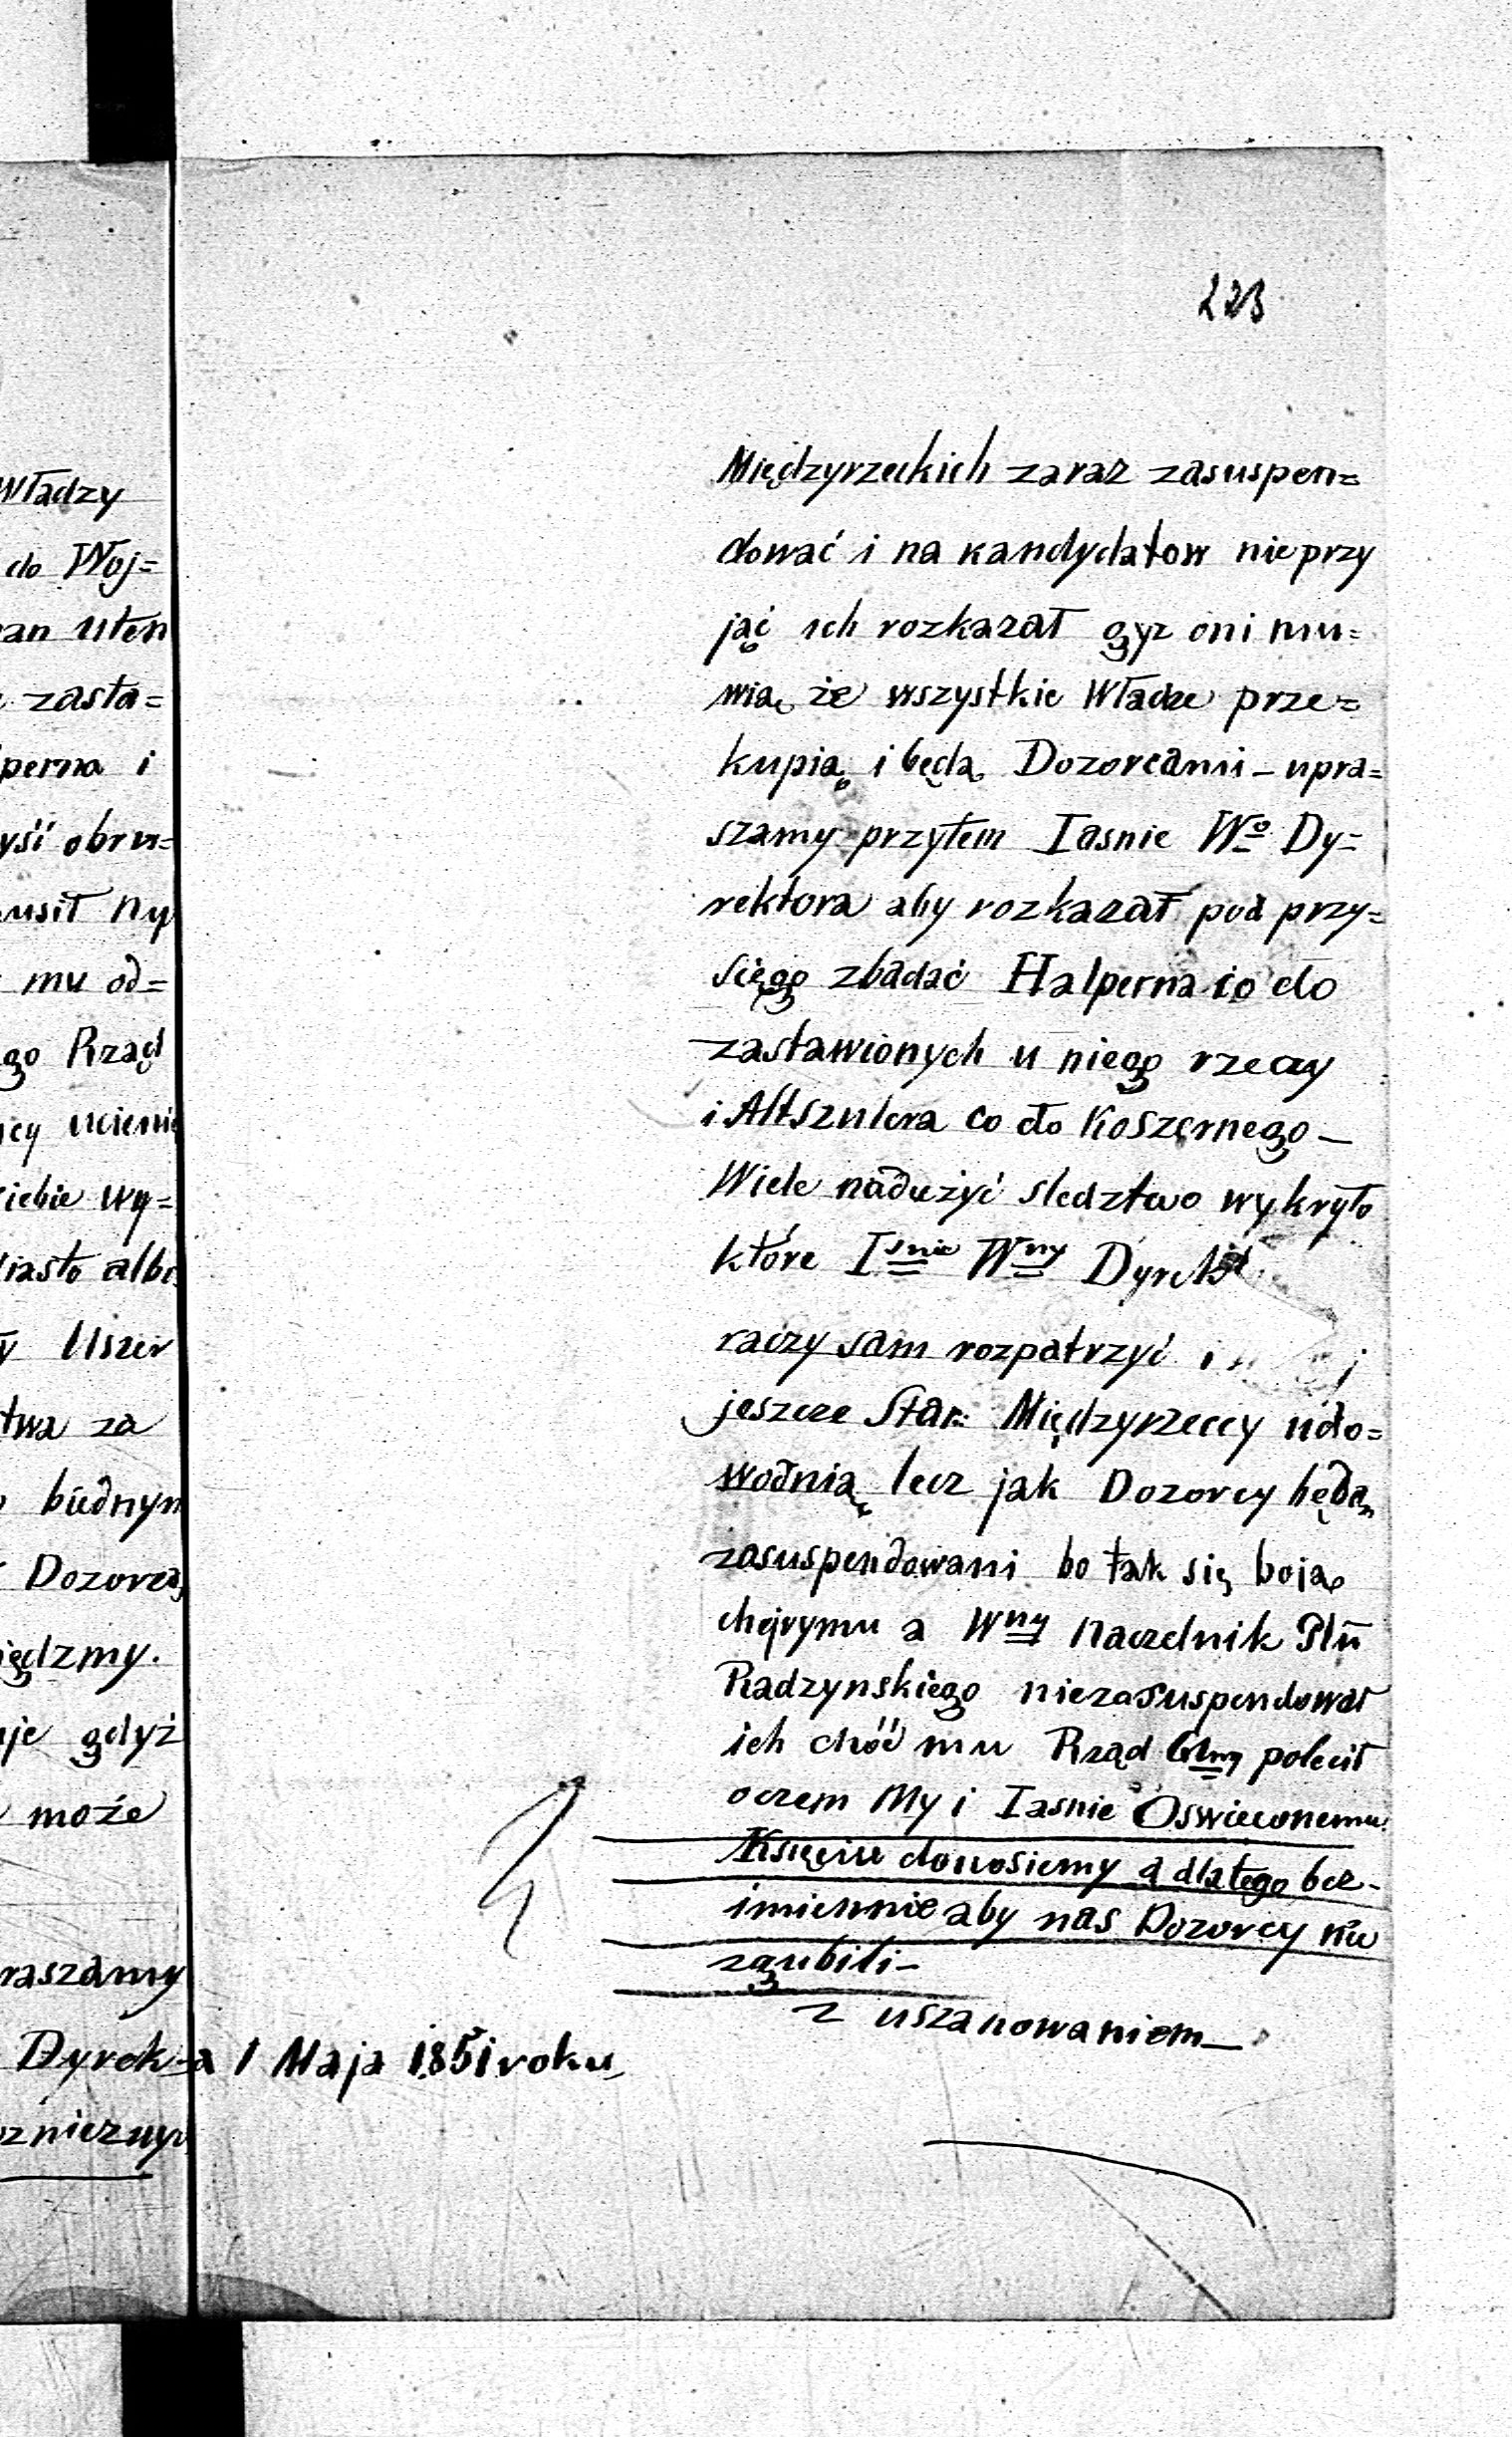 223
Władzy
do Woj=
zasta=
perna i
obru=
mu od=
go Rząd
wy=
Uszer
twa za
biednym
Dozorcą
gdyż
może
raszamy
Dyrek=
Międzyrzeckich zaraz zasuspen=
dować i na kandydatow nieprzy
jąć ich rozkazał gyz oni mu=
wią że wszystkie Władze prze=
kupią i będą Dozorcami – upra=
szamy przytem Iasnie Wo Dy=
rektora aby rozkazał pod przy=
sięgo zbadać Halperna co do
zastawionych u niego rzeczy
i Altszulera co do Koszernego –
Wiele nadużyć sledztwo wykryło
które Isnie Wny Dyrekt
raczy sam rozpatrzyć i
jeszcze Star: Międzyrzeccy udo=
wodnią lecz jak Dozorcy będą
zasuspendowani bo tak się boją
chejrymu a Wny Naczelnik Ptu
Radzynskiego niezasuspendował
ich chóć mu Rząd Glny polecił
oczem My i Iasnie Oswieconemu
Księciu donosiemy a dlatego bez-
imiennie aby nas Dozorcy nie
zgubili –
z uszanowaniem –
1 Maja 1851 roku